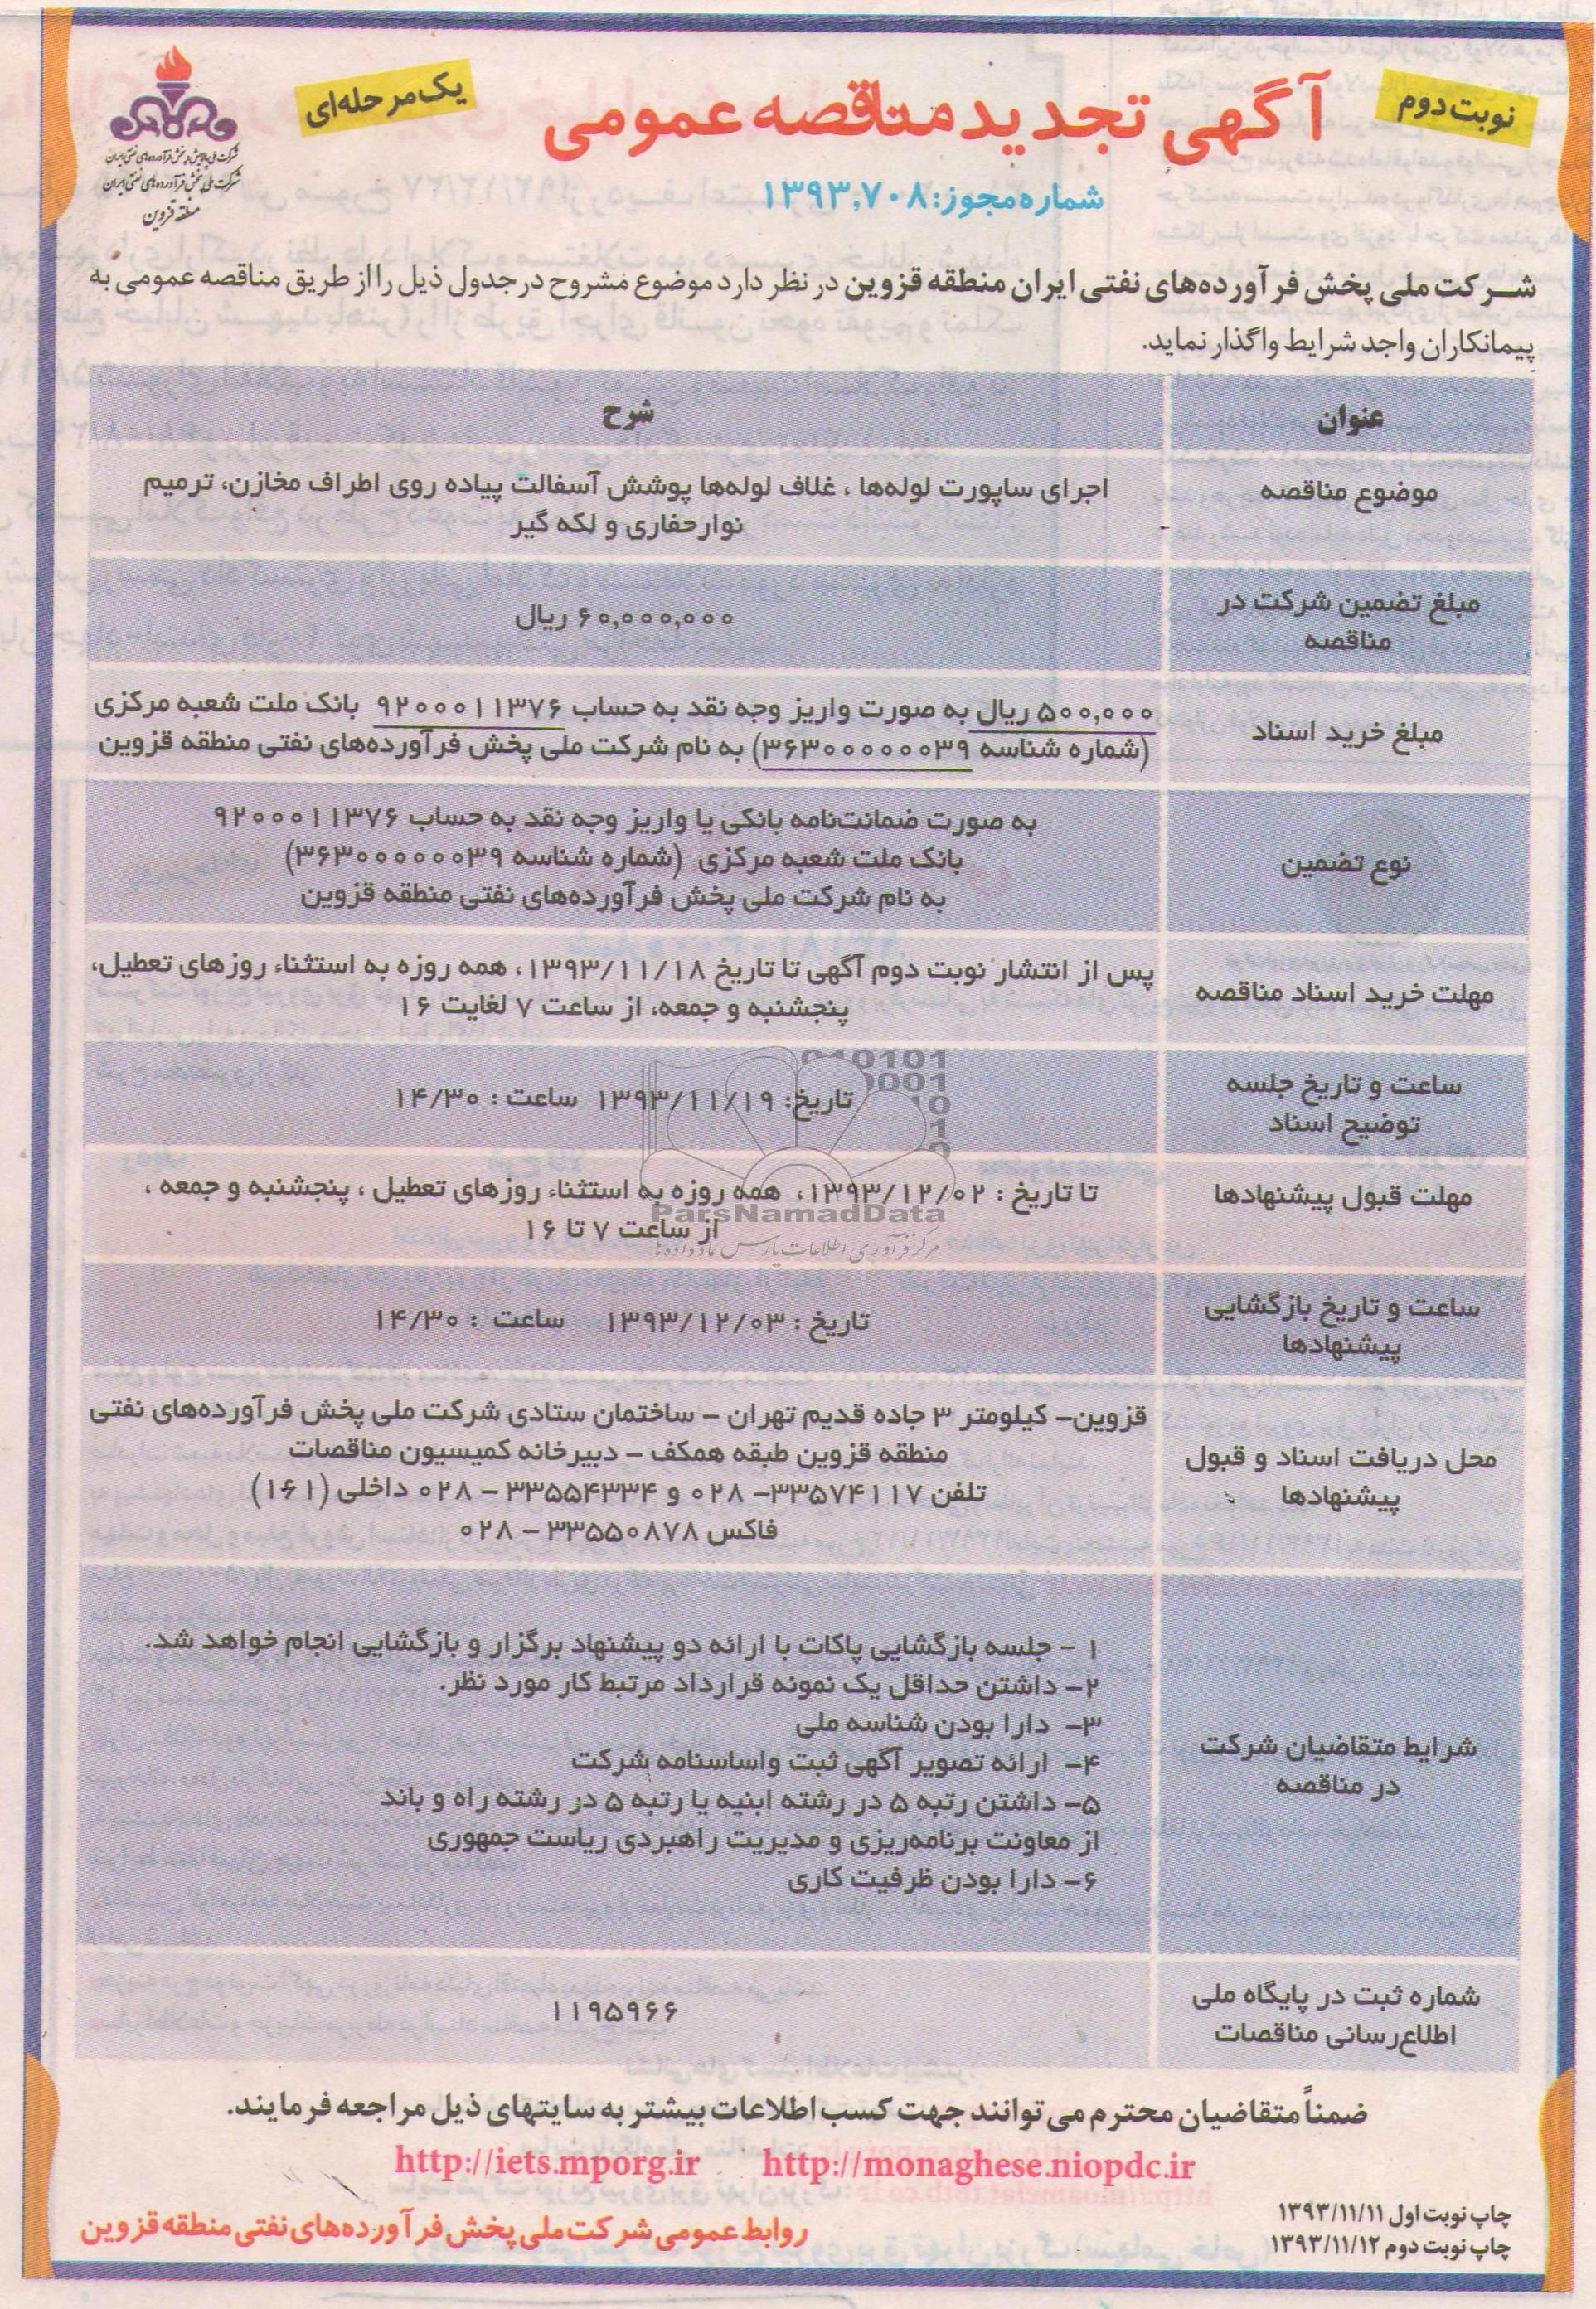 نوبت دوم
آگهی تجدید مناقصه عمومی
یک مرحله‌ای
شماره مجوز: ۱۳۹۳,۷۰۸
شرکت ملی پالایش و پخش فرآورده‌های نفتی ایران
شرکت ملی پخش فرآورده‌های نفتی ایران
منطقه قزوین
شرکت ملی پخش فرآورده‌های نفتی ایران منطقه قزوین در نظر دارد موضوع مشروح در جدول ذیل را از طریق مناقصه عمومی به
پیمانکاران واجد شرایط واگذار نماید.
عنوان
شرح
موضوع مناقصه
اجرای ساپورت لوله‌ها ، غلاف لوله‌ها پوشش آسفالت پیاده روی اطراف مخازن، ترمیم
نوار حفاری و لکه گیر
مبلغ تضمین شرکت در
مناقصه
۶۰,۰۰۰,۰۰۰ ریال
مبلغ خرید اسناد
۵۰۰,۰۰۰ ریال به صورت واریز وجه نقد به حساب ۹۲۰۰۰۱۱۳۷۶ بانک ملت شعبه مرکزی
(شماره شناسه ۳۶۳۰۰۰۰۰۰۰۳۹) به نام شرکت ملی پخش فرآورده‌های نفتی منطقه قزوین
نوع تضمین
به صورت ضمانت‌نامه بانکی یا واریز وجه نقد به حساب ۹۲۰۰۰۱۱۳۷۶
بانک ملت شعبه مرکزی (شماره شناسه ۳۶۳۰۰۰۰۰۰۰۳۹)
به نام شرکت ملی پخش فرآورده‌های نفتی منطقه قزوین
مهلت خرید اسناد مناقصه
پس از انتشار نوبت دوم آگهی تا تاریخ ۱۳۹۳/۱۱/۱۸، همه روزه به استثناء روزهای تعطیل،
پنجشنبه و جمعه، از ساعت ۷ لغایت ۱۶
ساعت و تاریخ جلسه
توضیح اسناد
تاریخ: ۱۳۹۳/۱۱/۱۹ ساعت : ۱۴/۳۰
مهلت قبول پیشنهادها
تا تاریخ : ۱۳۹۳/۱۲/۰۲، همه روزه به استثناء روزهای تعطیل ، پنجشنبه و جمعه ،
از ساعت ۷ تا ۱۶
ParsNamadData
مرکز فرآوری اطلاعات پارس نماد داده‌ها
ساعت و تاریخ بازگشایی
پیشنهادها
تاریخ : ۱۳۹۳/۱۲/۰۳ ساعت : ۱۴/۳۰
محل دریافت اسناد و قبول
پیشنهادها
قزوین- کیلومتر ۳ جاده قدیم تهران – ساختمان ستادی شرکت ملی پخش فرآورده‌های نفتی
منطقه قزوین طبقه همکف – دبیرخانه کمیسیون مناقصات
تلفن ۳۳۵۷۴۱۱۷- ۰۲۸ و ۳۳۵۵۴۳۳۴ – ۰۲۸ داخلی (۱۶۱)
فاکس ۳۳۵۵۰۸۷۸ – ۰۲۸
شرایط متقاضیان شرکت
در مناقصه
۱ – جلسه بازگشایی پاکات با ارائه دو پیشنهاد برگزار و بازگشایی انجام خواهد شد.
۲- داشتن حداقل یک نمونه قرارداد مرتبط کار مورد نظر.
۳- دارا بودن شناسه ملی
۴- ارائه تصویر آگهی ثبت و اساسنامه شرکت
۵- داشتن رتبه ۵ در رشته ابنیه یا رتبه ۵ در رشته راه و باند
از معاونت برنامه‌ریزی و مدیریت راهبردی ریاست جمهوری
۶- دارا بودن ظرفیت کاری
شماره ثبت در پایگاه ملی
اطلاع‌رسانی مناقصات
۱۱۹۵۹۶۶
ضمناً متقاضیان محترم می‌توانند جهت کسب اطلاعات بیشتر به سایتهای ذیل مراجعه فرمایند.
http://iets.mporg.ir http://monaghese.niopdc.ir
چاپ نوبت اول ۱۳۹۳/۱۱/۱۱
چاپ نوبت دوم ۱۳۹۳/۱۱/۱۲
روابط عمومی شرکت ملی پخش فرآورده‌های نفتی منطقه قزوین